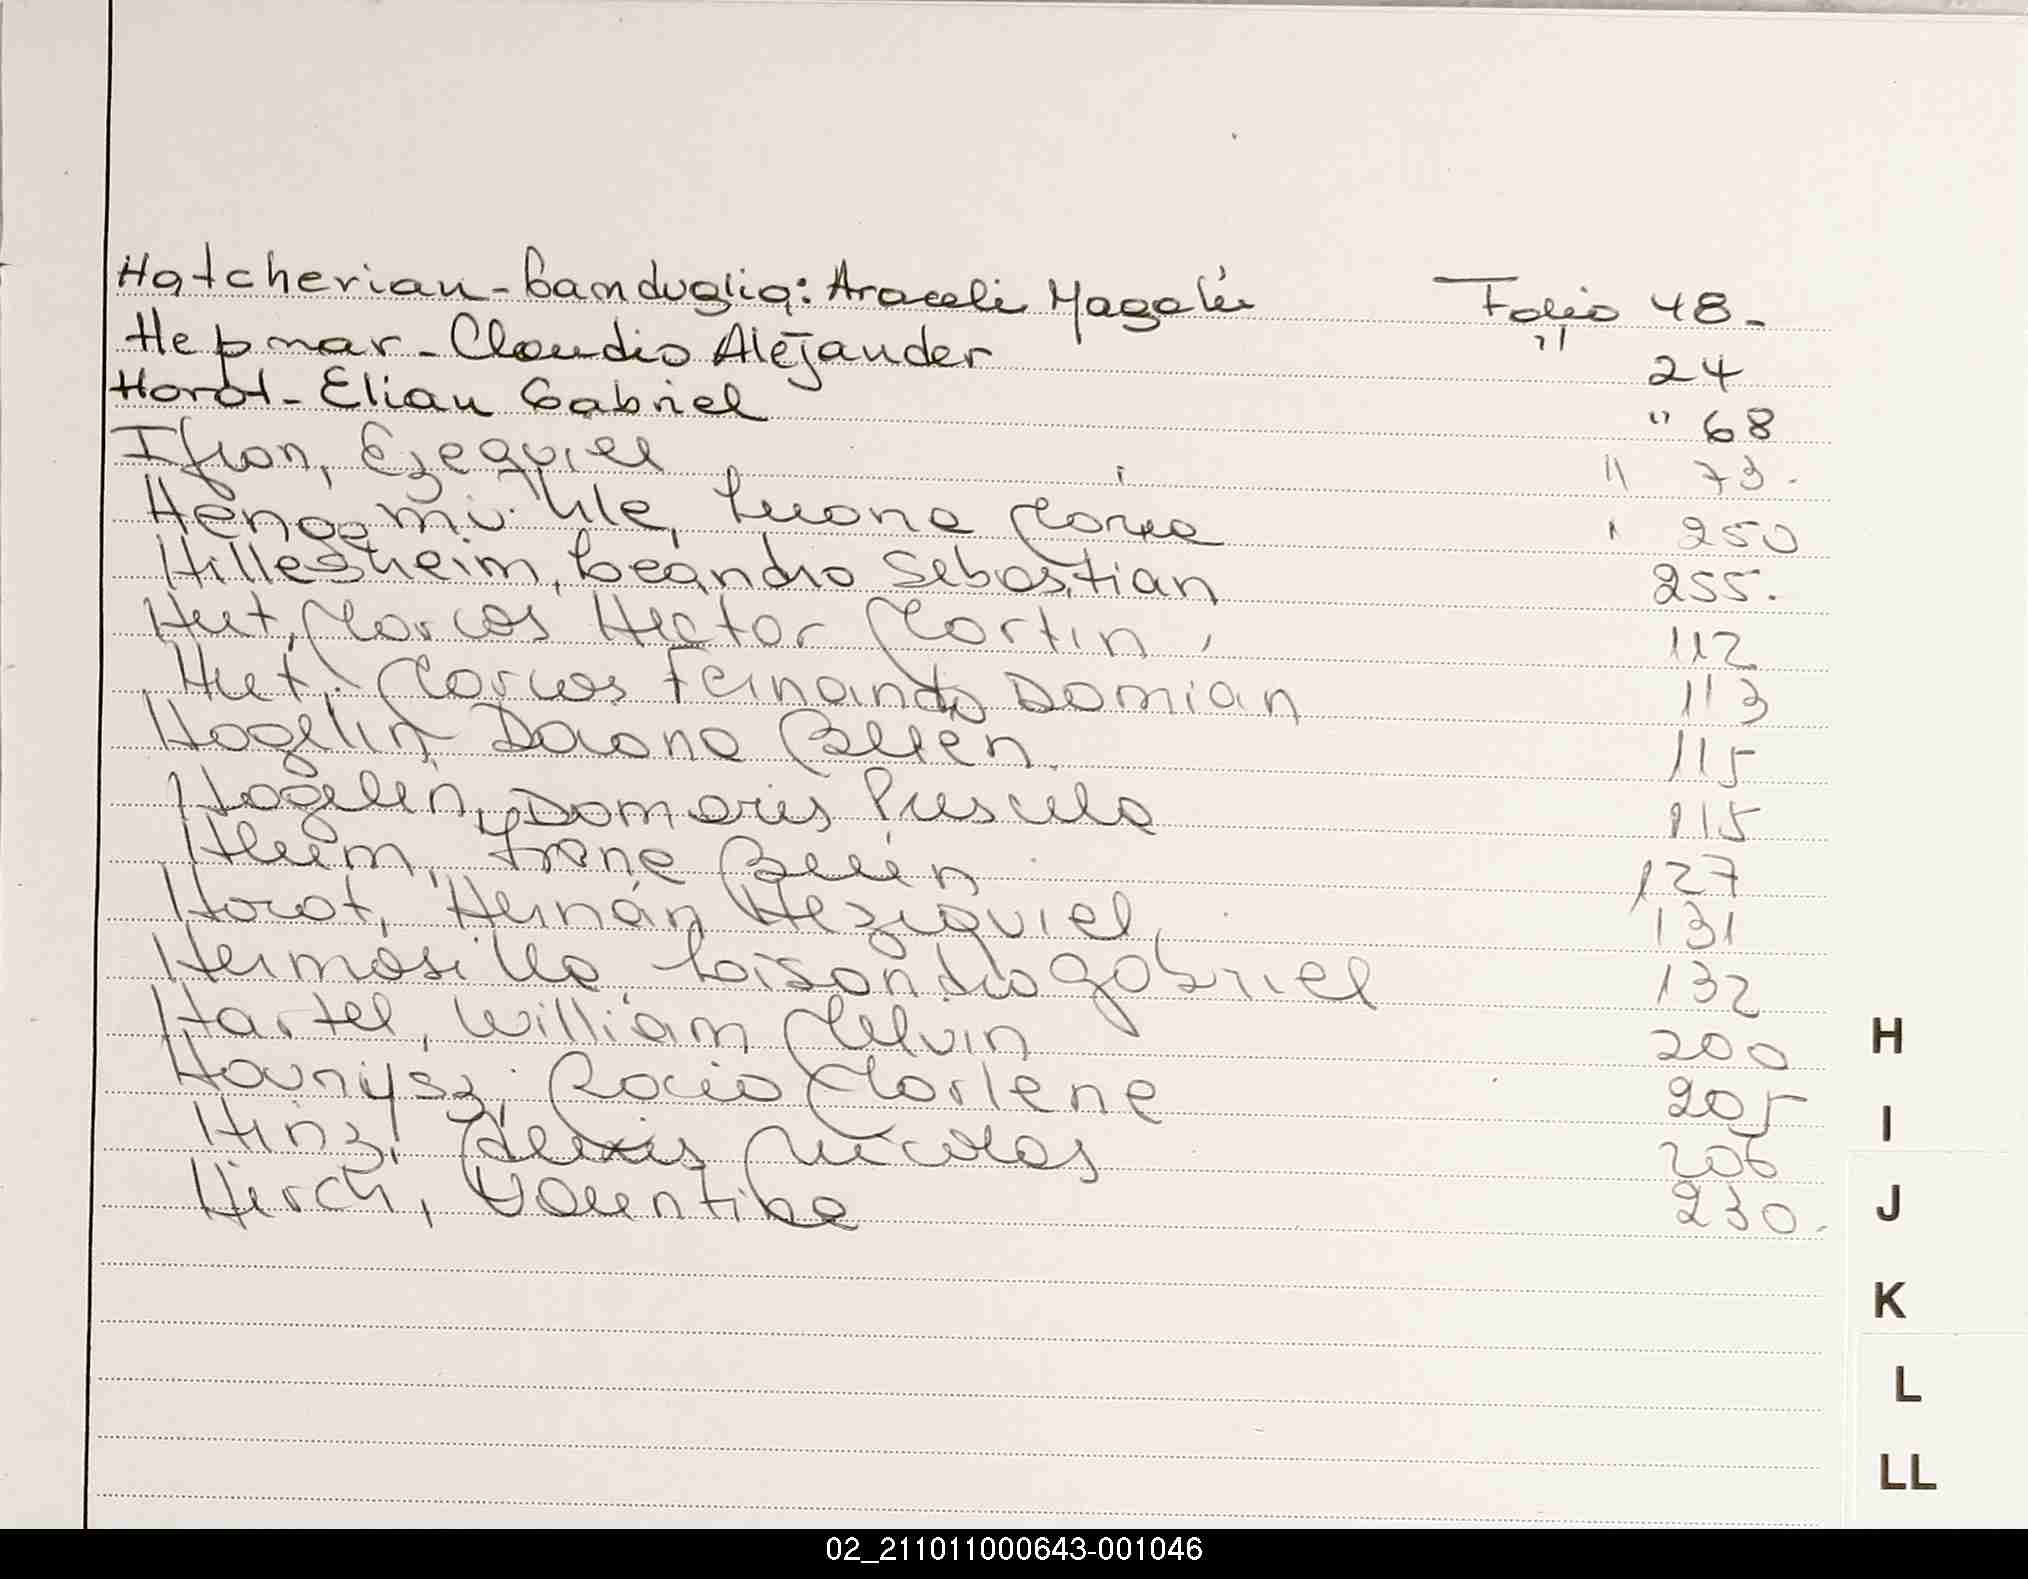 Hatcherian - Banduglia: Araceli Magalí Folio 48.
Hepnar - Claudio Alejander " 24
Horot - Elian Gabriel " 68
Ifran, Ezequiel " 73.
Luana María 250
Hillesheim, Leandro Sebastian 255.
Hut, Marcos Hector Martin 112
Hut, Marcos Fernando Damian 113
Hogelin Daiana Belen 115
Hogelin, Damaris Priscila 115
Irene Belén 127
Horot, Hernán Heziquiel 131
Hermosilla Lisandro Gabriel 132
Hartel, William Melvin 200
Hounysz, Rocio Marlene 205
Hinz, Alexis Nicolas 206
Hirch, Valentina 230.
H
I
J
K
L
LL
02_211011000643-001046